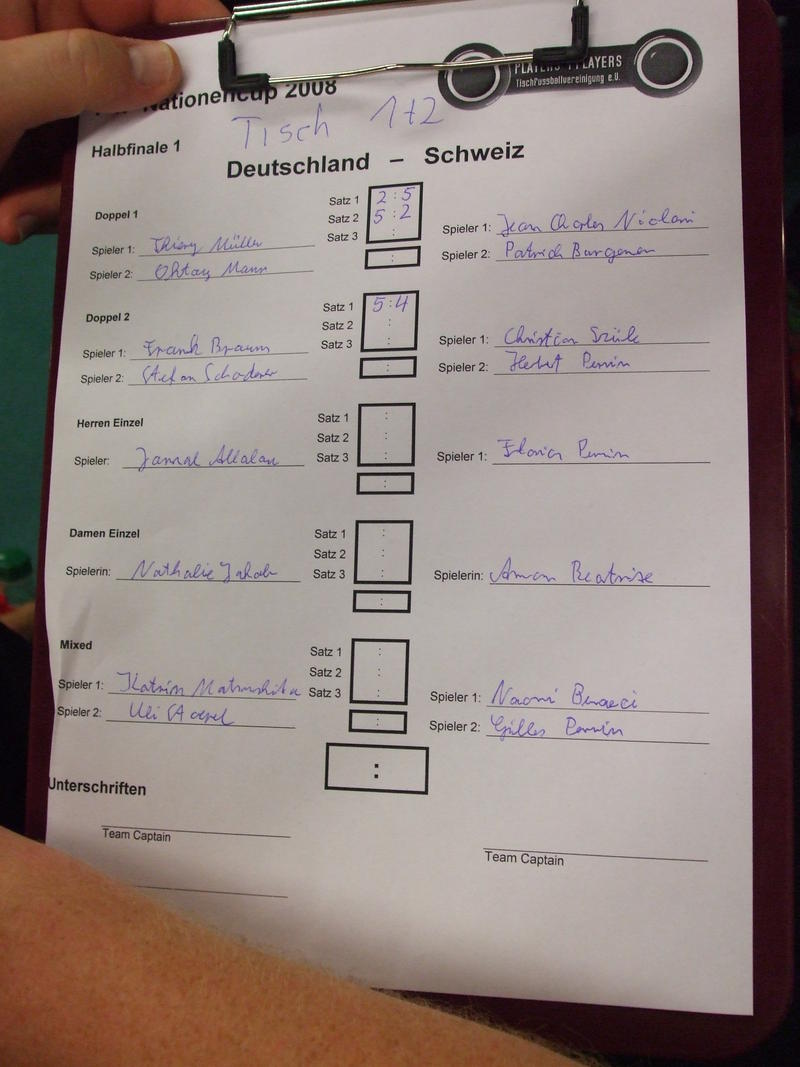 PLAYERS 4 PLAYERS
Tischfussballvereinigung e.U.
Nationencup 2008
Tisch 1+2
Halbfinale 1
Deutschland – Schweiz
Doppel 1
Satz 1 2:5
Satz 2 5:2
Satz 3 :
Spieler 1: Thierry Müller
Spieler 2: Oktay Mann
:
Spieler 1: Jean Charles Nicolani
Spieler 2: Patrick Burgener
Doppel 2
Satz 1 5:4
Satz 2 :
Satz 3 :
Spieler 1: Frank Braum
Spieler 2: Stefan Schoderer
:
Spieler 1: Christian
Spieler 2: Herbert Perrin
Herren Einzel
Satz 1 :
Satz 2 :
Satz 3 :
Spieler: Jamal Allalou
:
Spieler 1: Florian Perrin
Damen Einzel
Satz 1 :
Satz 2 :
Satz 3 :
Spielerin: Nathalie Jakob
:
Spielerin: Beatrise
Mixed
Satz 1 :
Satz 2 :
Satz 3 :
Spieler 1: Katrin Matuschita
Spieler 2: Uli Stoepel
:
Spieler 1: Naomi
Spieler 2: Gilles Perrin
:
Unterschriften
Team Captain
Team Captain